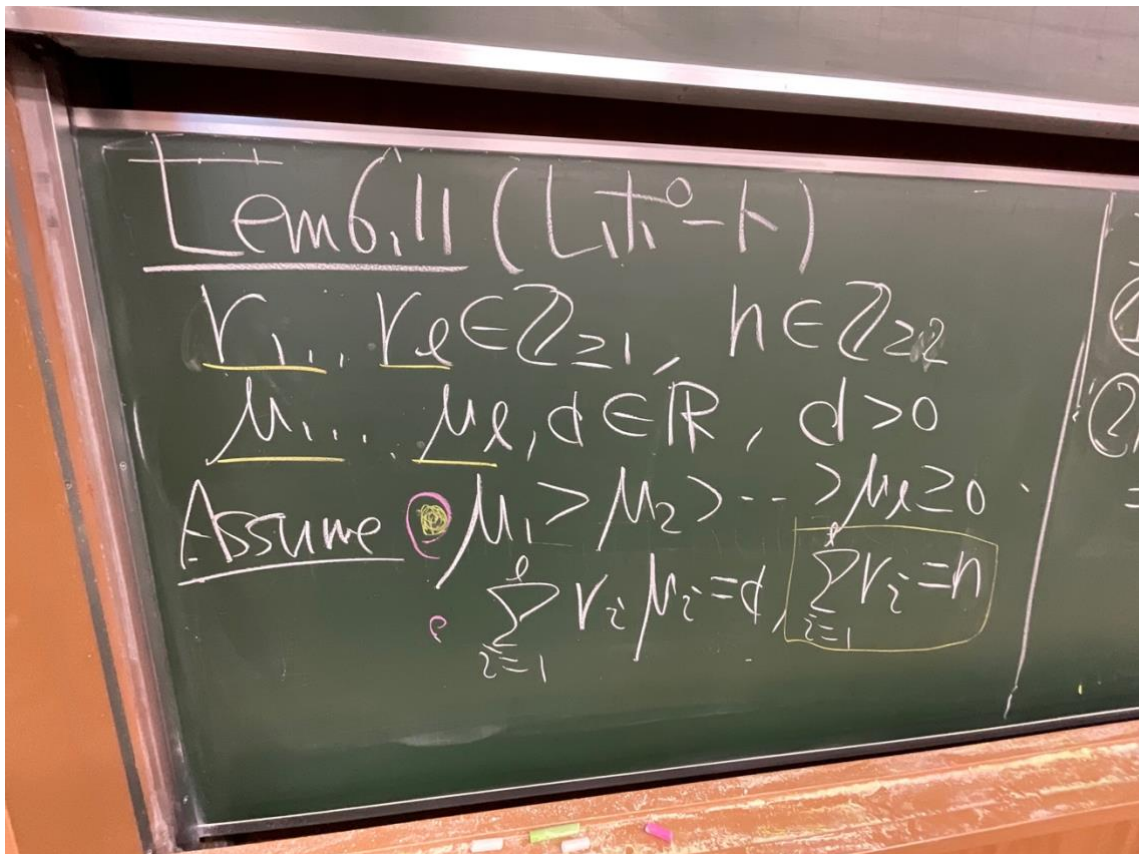 Lem 6.11 (レポート)
r₁... rₗ ∈ ℤ≥₁, n ∈ ℤ≥₂
μ₁... μₗ, d ∈ ℝ, d > 0
Assume • μ₁ > μ₂ > ... > μₗ ≥ 0
• ∑ᵢ₌₁ˡ rᵢ μᵢ = d, ∑ᵢ₌₁ˡ rᵢ = n
①
②
=